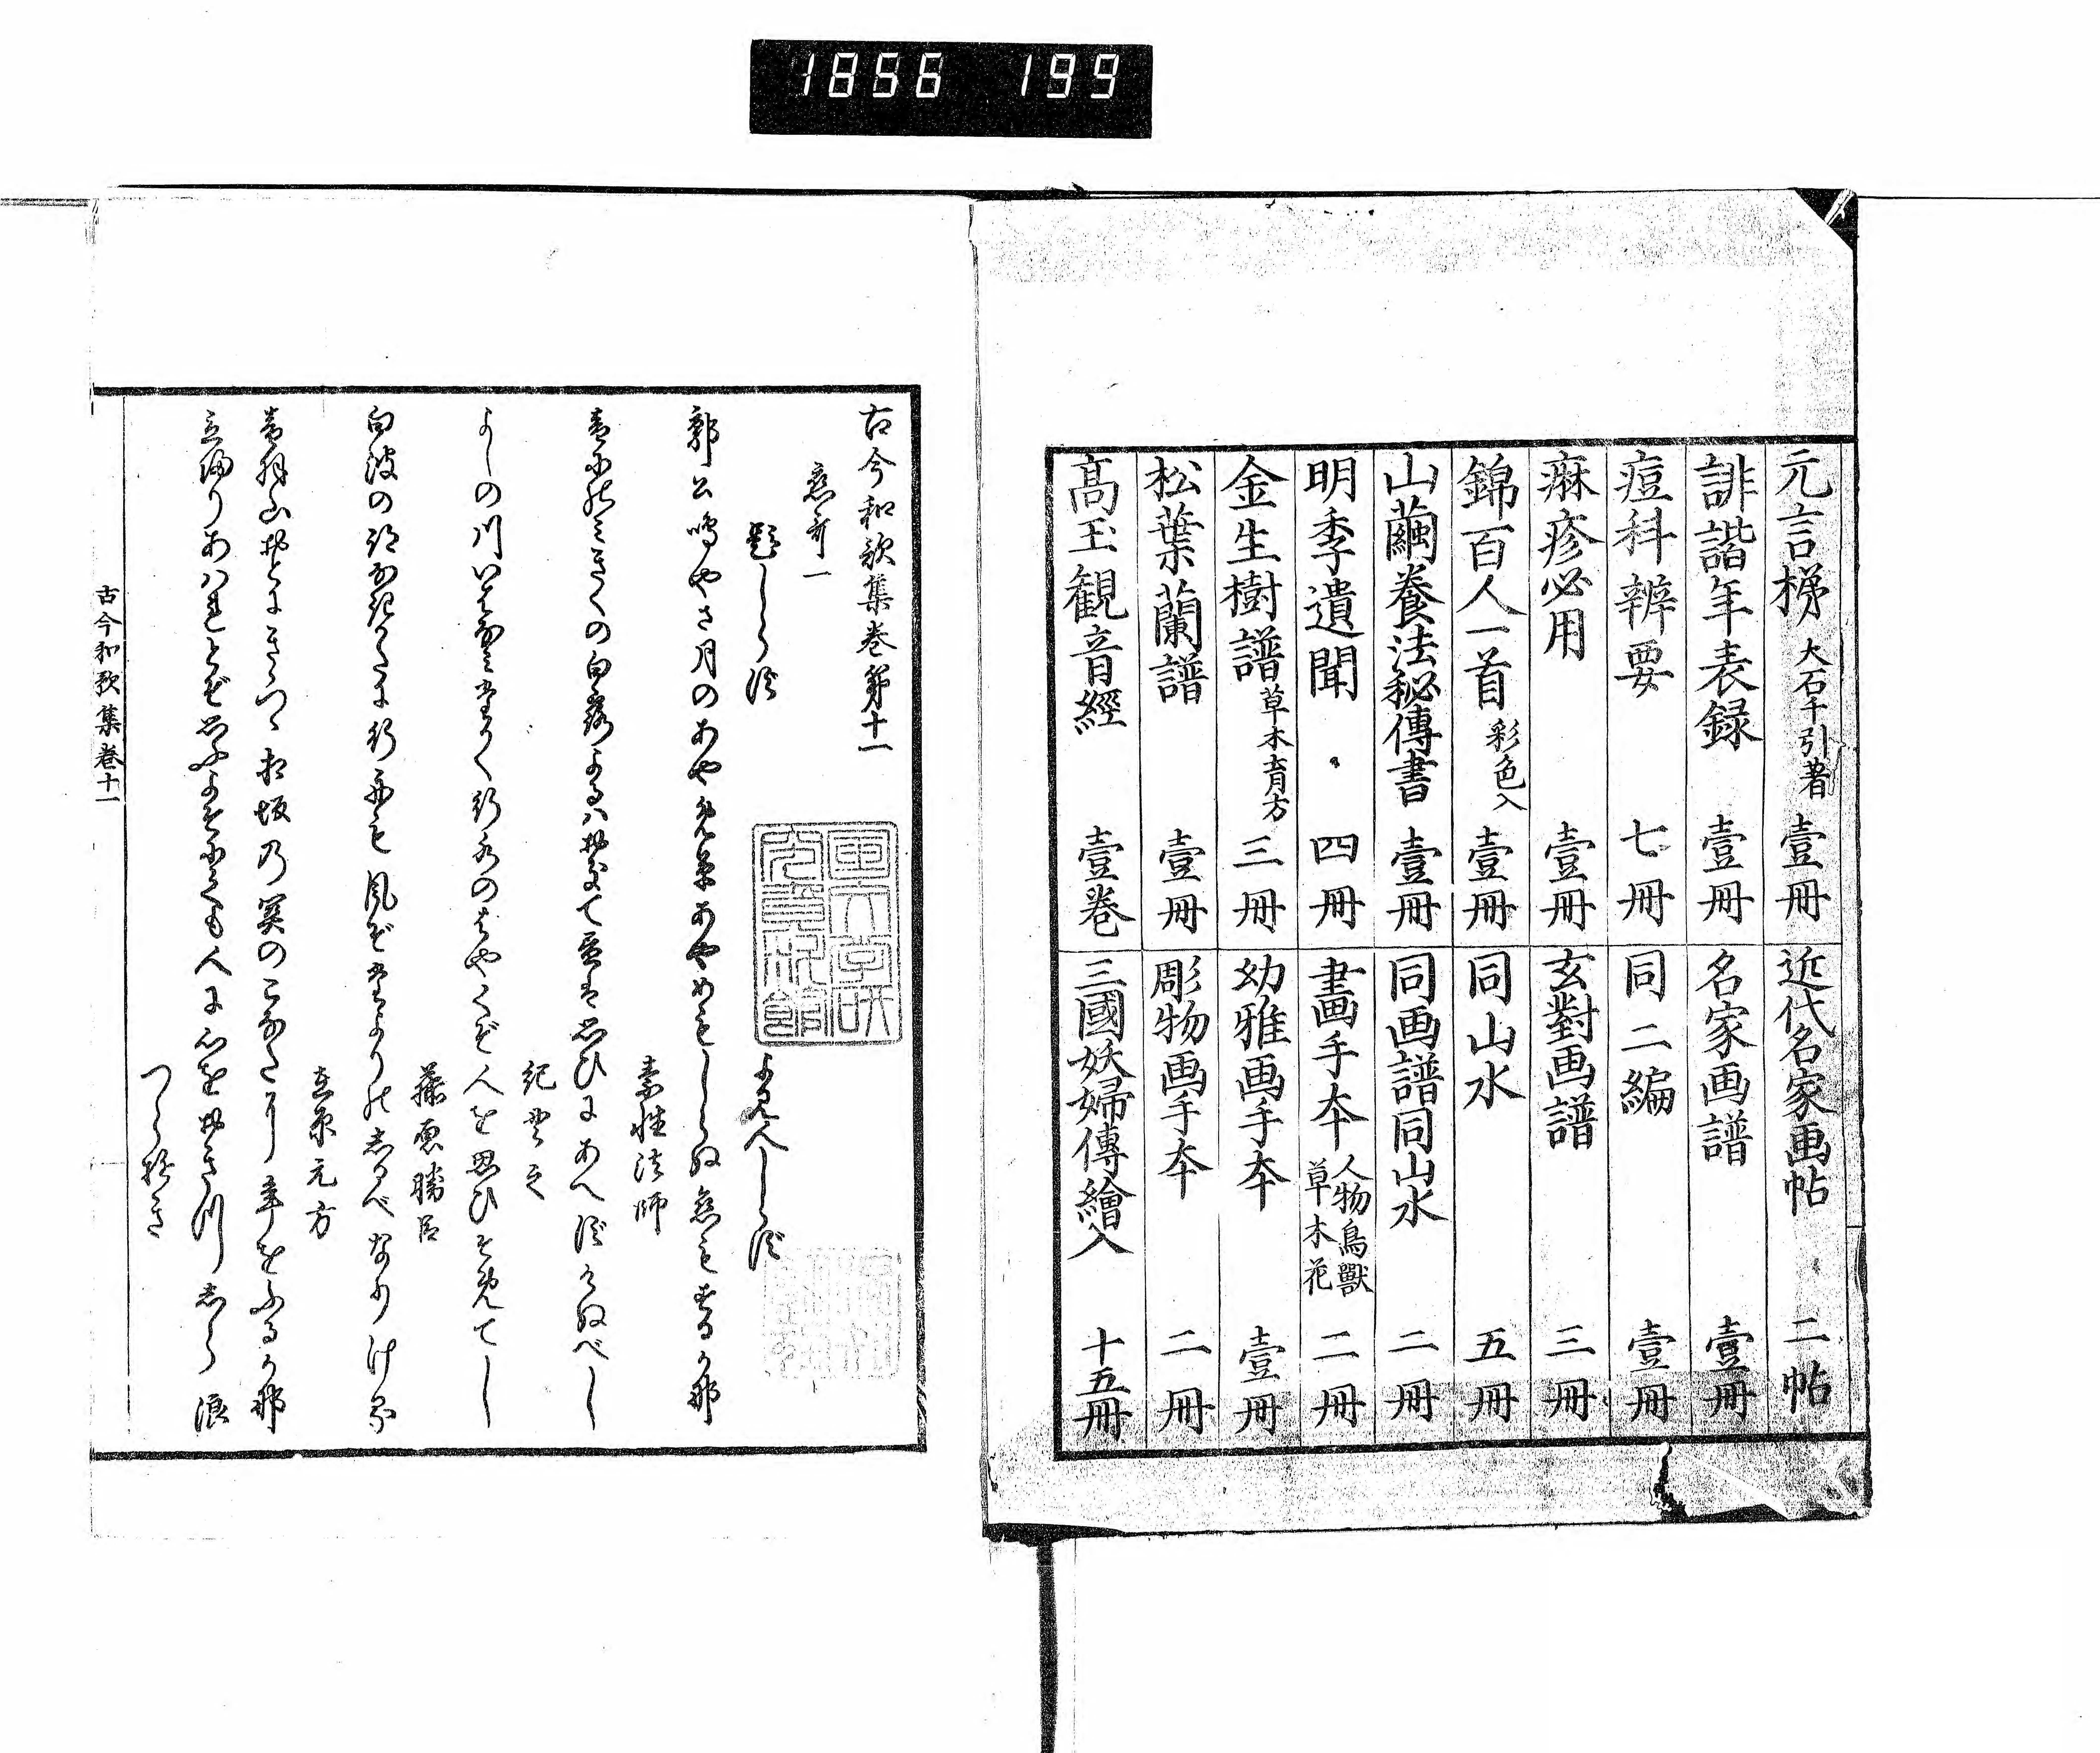 1856 199
元言梯 大石千引著 壹冊
誹諧年表録 壹冊
痘科辨要 七冊
痳疹必用 壹冊
錦百人一首 彩色入 壹冊
山繭養法秘傳書 壹冊
明季遺聞 四冊
金生樹譜 草木育方 三冊
松葉蘭譜 壹冊
髙玉観音經 壹巻
近代名家画帖 二帖
名家画譜 壹冊
同二編 壹冊
玄對画譜 三冊
同山水 五冊
同画譜同山水 二冊
畫手夲 人物鳥獸草木花 二冊
幼雅画手夲 壹冊
彫物画手夲 二冊
三國妖婦傳繪入 十五冊
古今和歌集巻第十一
恋哥一
題しらず よみ人しらず
郭公鳴やさ月のあやめ草あやめもしらぬ恋もするかな
素性法師
音にのみきくの白露よるハおきてひるは思ひにあへずけぬべし
紀貫之
よしの川いはなみたかく行水のはやくぞ人を思ひそめてし
藤原勝臣
白波の跡なきかたに行舟も風ぞたよりのしるべなりける
在原元方
音羽山おとにきゝつゝ相坂の関のこなたに年をふるかな
立帰りあハれとぞ思ふよそにても人に心をおきつしら浪
つらゆき
古今和歌集巻十一
国文学研究資料館